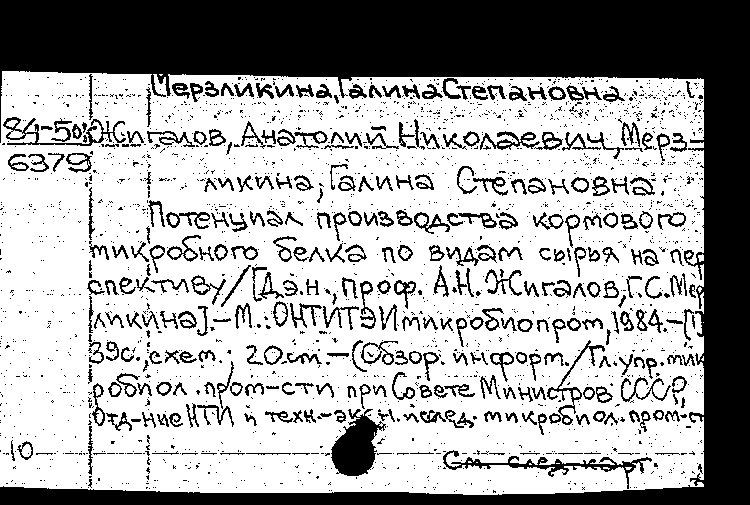 Мерзликина, Галина Степановна.
84-50%
Жигалов, Анатолий Николаевич, Мерз-
6379
ликина, Галина Степановна.
Потенциал производства кормового
микробного белка по видам сырья на пер
спективу // [Д.э.н., проф. А.Н. Жигалов, Г.С. Мер
ликина]. – М.: ОНТИТЭИмикробиопром, 1984. –
39с., схем.; 20см. – (Обзор. информ. / Гл. упр. мик
робиол. пром-сти при Совете Министров СССР,
Отд-ние НТИ и техн.-экон. исслед. микробиол. пром-ст
10
См. след. карт.